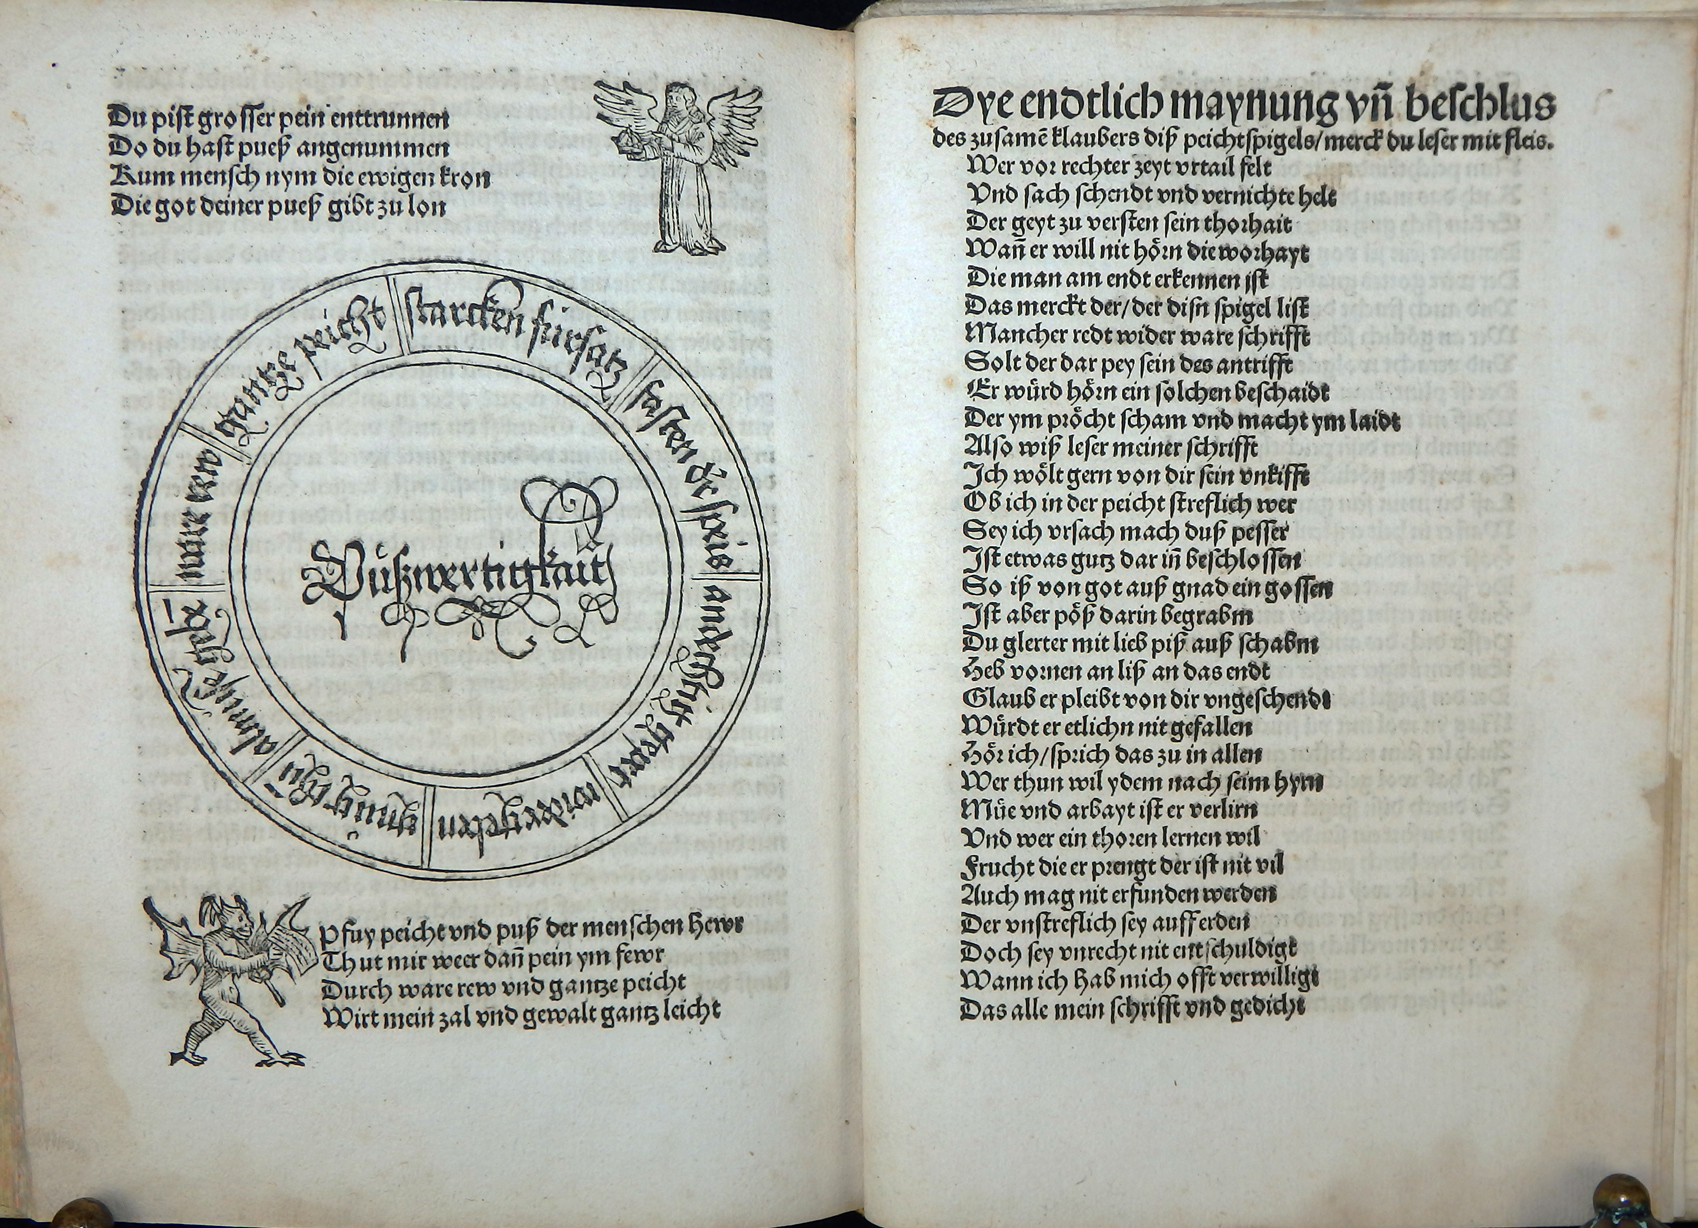 Du pist grosser pein enttrunnen
Do du hast pueß angenummen
Kum mensch nym die ewigen kron
Die got deiner pueß gibt zu lon
starcken fürsatz
fasten d͛ speis
andechtig gepet
almuse
gantze peicht
ware rew
Püßwertigkait
Pfuy peicht vnd puß der menschen hewr
Thut mir weer dañ pein ym fewr
Durch ware rew vnd gantze peicht
Wirt mein zal vnd gewalt gantz leicht
Dye endtlich maynung vñ beschlus
des zusamē klaubers diß peichtspigels/merck du leser mit fleis.
Wer vor rechter zeyt vrtail felt
Vnd sach schendt vnd vernichte helt
Der geyt zu versten sein thorhait
Wañ er will nit hörn die worhayt
Die man am endt erkennen jst
Das merckt der/der disn spigel list
Mancher redt wider ware schrifft
Solt der dar pey sein des antrifft
Er würd hörn ein solchen beschaidt
Der ym pröcht scham vnd macht ym laidt
Also wiß leser meiner schrifft
Ich wölt gern von dir sein vnkifft
Ob ich in der peicht streflich wer
Sey ich vrsach mach duß pesser
Ist etwas gutz dar iñ beschlossen
So iß von got auß gnad ein gossen
Ist aber pöß darin begrabm
Du glerter mit lieb piß auß schabm
Heb vornen an liß an das endt
Glaub er pleibt von dir vngeschendt
Würdt er etlichn nit gefallen
Hör ich/sprich das zu in allen
Wer thun wil ydem nach seim hym
Müe vnd arbayt ist er verlirn
Vnd wer ein thoren lernen wil
Frucht die er prengt der ist nit vil
Auch mag nit erfunden werden
Der vnstreflich sey auff erden
Doch sey vnrecht nit entschuldigt
Wann ich hab mich offt verwilligt
Das alle mein schrifft vnd gedicht